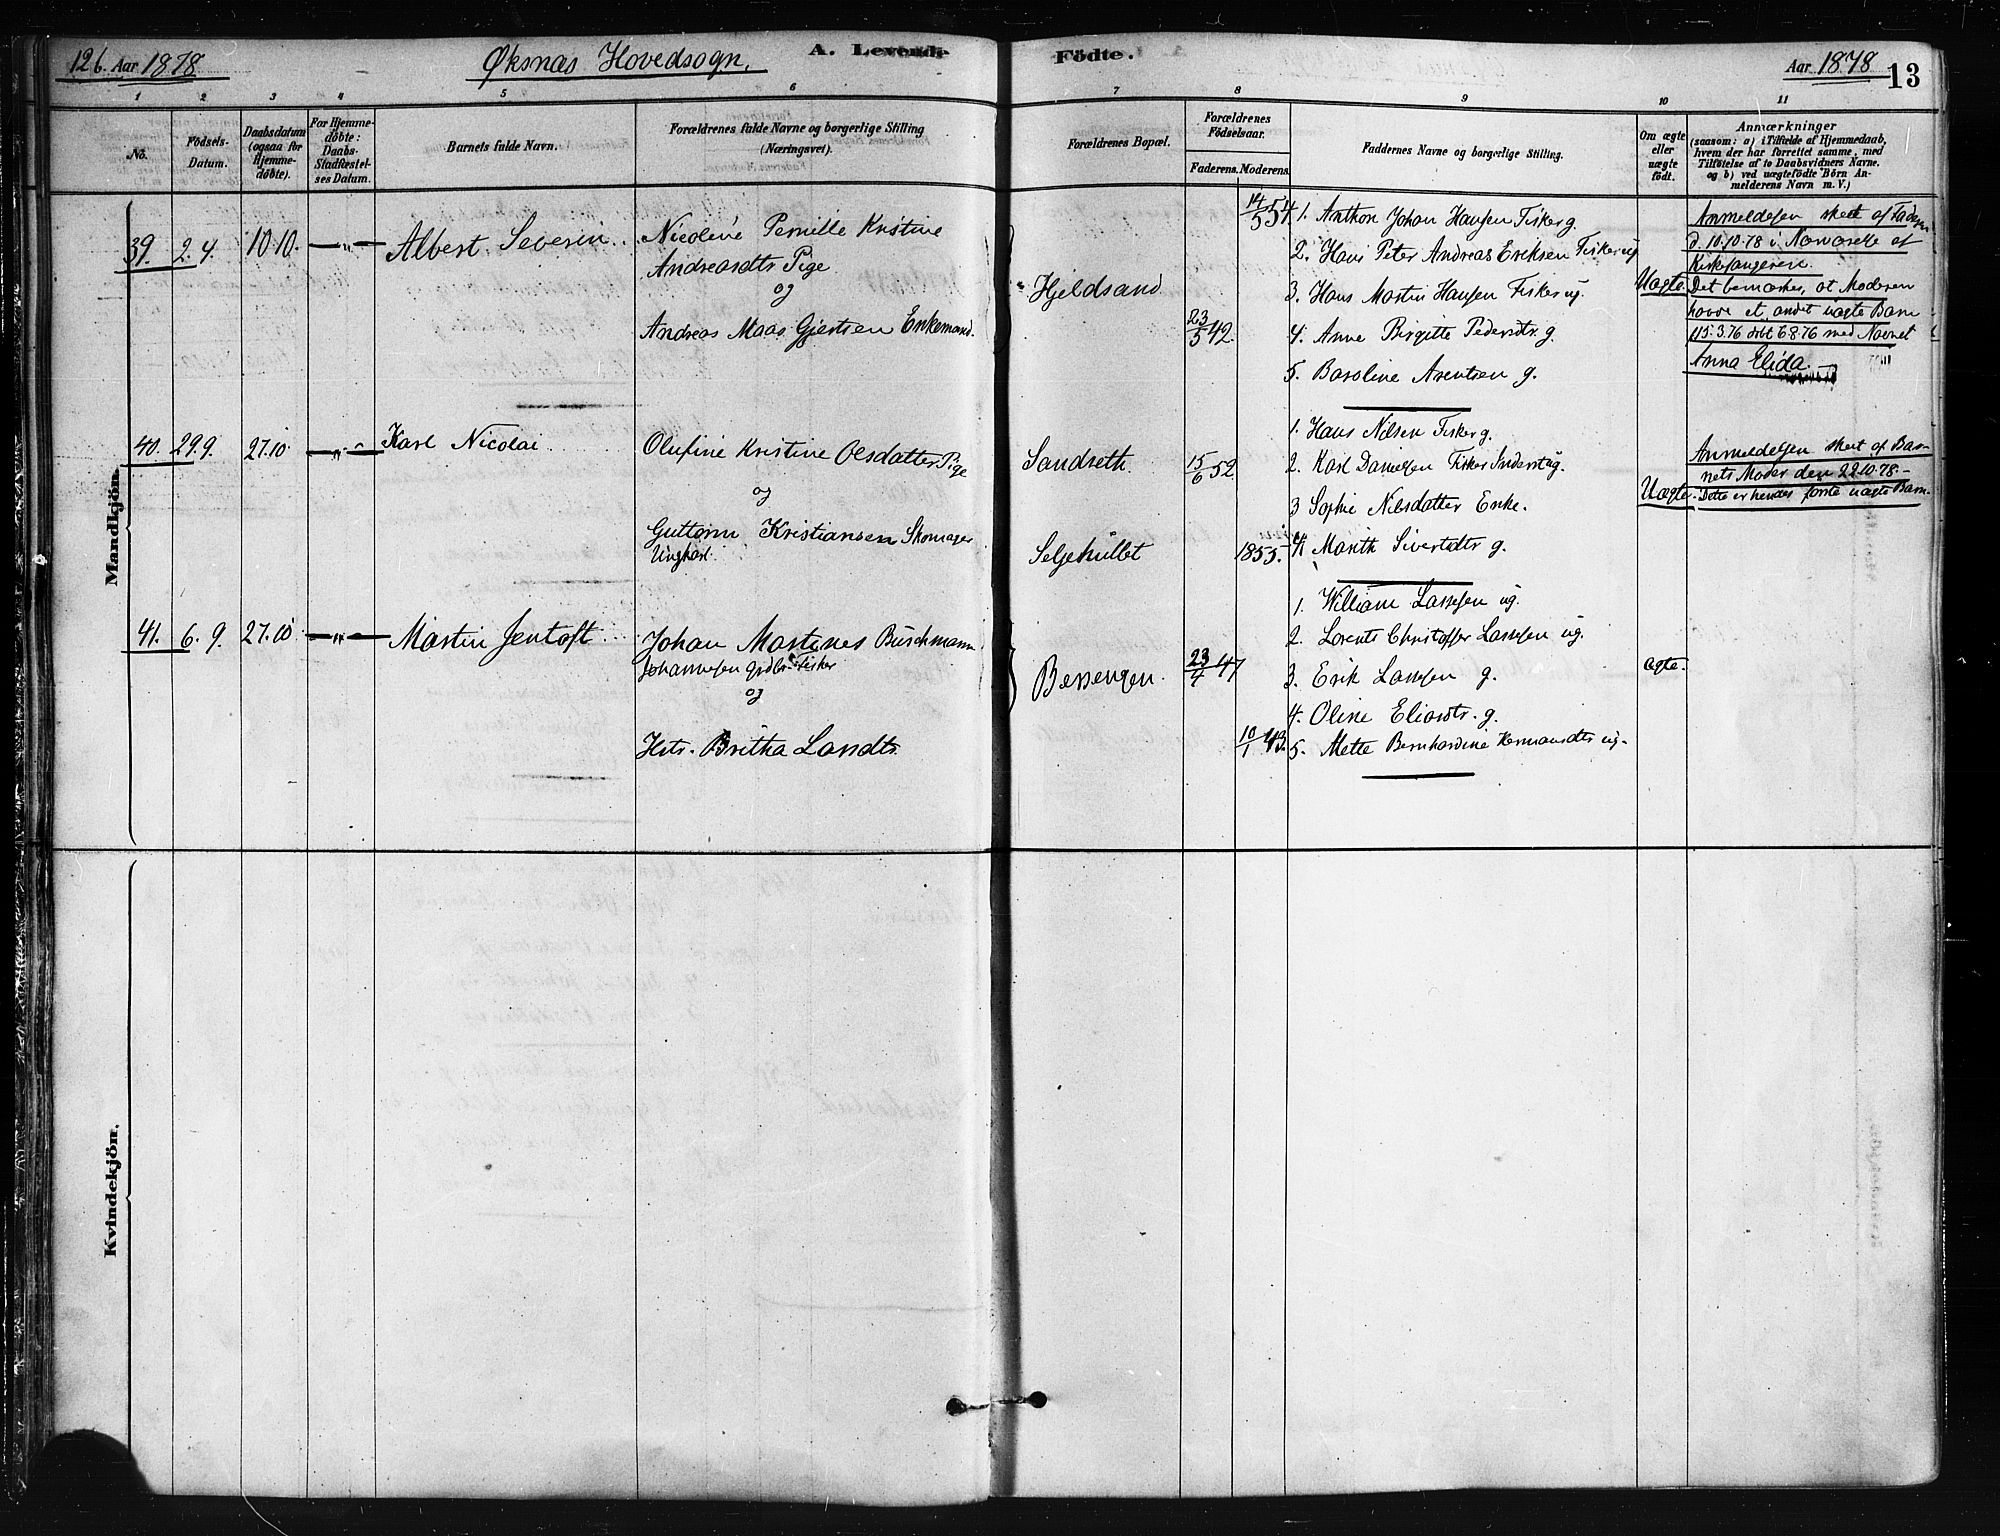 126. Aar 1878
Øksnæs Hovedsogn.
A. Levende
Fødte.
Aar 1878
13
1 2 3 4 5 6 7 8 9 10 11
No.
Födsels-
Datum.
Daabsdatum
(ogsaa for
Hjemme-
døbte).
For Hjemme-
døbte:
Daabs-
Stadfæstel-
ses Datum.
Barnets fulde Navn.
Forældrenes fulde Navne og borgerlige Stilling
(Næringsvei).
Forældrenes Bopæl.
Forældrenes
Födselsaar.
Faderens. Moderens.
Faddernes Navne og borgerlige Stilling.
Om ægte
eller
uægte
født.
Anmærkninger
(saasom: a) i Tilfælde af Hjemmedaab,
hvem der har forrettet samme, med
Tilføielse af to Daabsvidners Navne,
og b) ved uægtefödte Börn An-
melderens Navn m. V.)
Mandkjön.
39. 2.4. 10.10. —"— Albert Severin
Nicoline Pernille Kristine
Andreasdtr Pige
og
Andreas Maas Gjertsen Enkemand.
Hjeldsand
14/5 51
23/5 42.
1. Anthon Johan Hansen Fisker g.
2. Hans Peter Andreas Eriksen Fisker ug
3. Hans Martin Hansen Fisker ug.
4. Anne Birgitte Pedersdtr g.
5. Baroline Arentsen g.
Uægte
Anmeldelsen skeet af Faderen
d. 10.10.78 i Nærværelse af
Kirkesangeren.
Det bemærkes, at Moderen
havde et andet uægte Barn
f 15.3.76 døbt 6.8.76 med Navnet
Anna Elida.
40. 29.9. 27.10. —"— Karl Nicolai
Olufine Kristine Olsdatter Pige
og
Guttorm Kristiansen Skomager
Ungkarl.
Sandseth.
Seljehullet
15/6 52.
1855.
1. Hans Nilsen Fisker g.
2. Karl Danielsen Fisker Inderst ug.
3 Sophie Nilsdatter Enke.
4. Marith Sivertdtr g.
Uægte.
Anmeldelsen skeet af Bar-
nets Moder den 22.10.78.-
Dette er hendes første uægte Barn.
41. 6.9. 27.10 —"— Martin Jentoft.
Johan Martines Buschmann
Johannesen Grdbr. Fisker
og
Hstr. Britha Larsdtr.
Bessengen.
23/4 47
10/1 43.
1. William Lassesen ug.
2. Lorents Christoffer Lassesen ug.
3. Erik Lassesen g.
4. Oline Eliasdtr. g.
5. Mette Bernhardine Hermansdtr ug.
ægte.
Kvindekjön.